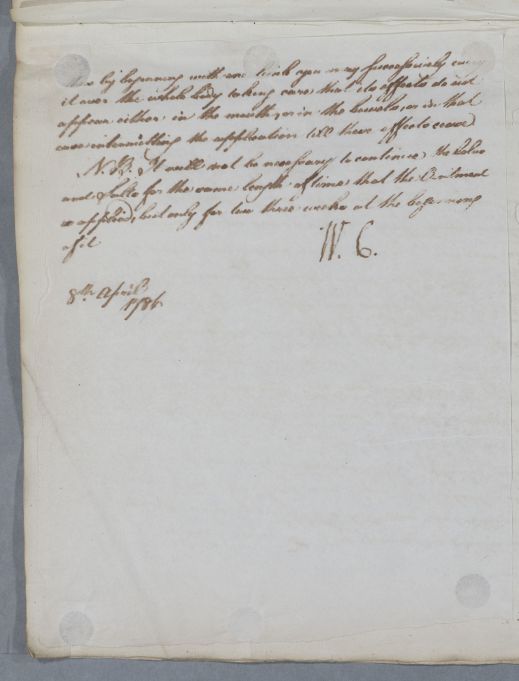 by beginning with one limb you may successively carry
it over the whole body taking care that its effects do not
appear either in the mouth, or in the bowels, or in that
case intermitting the application till these effects cease
N.B. It will not be necessary to continue the Bolus
and Salts for the same length of time that the Ointment
is applied, but only for two three weeks at the beginning
of it
W. C.
8th. April
1786